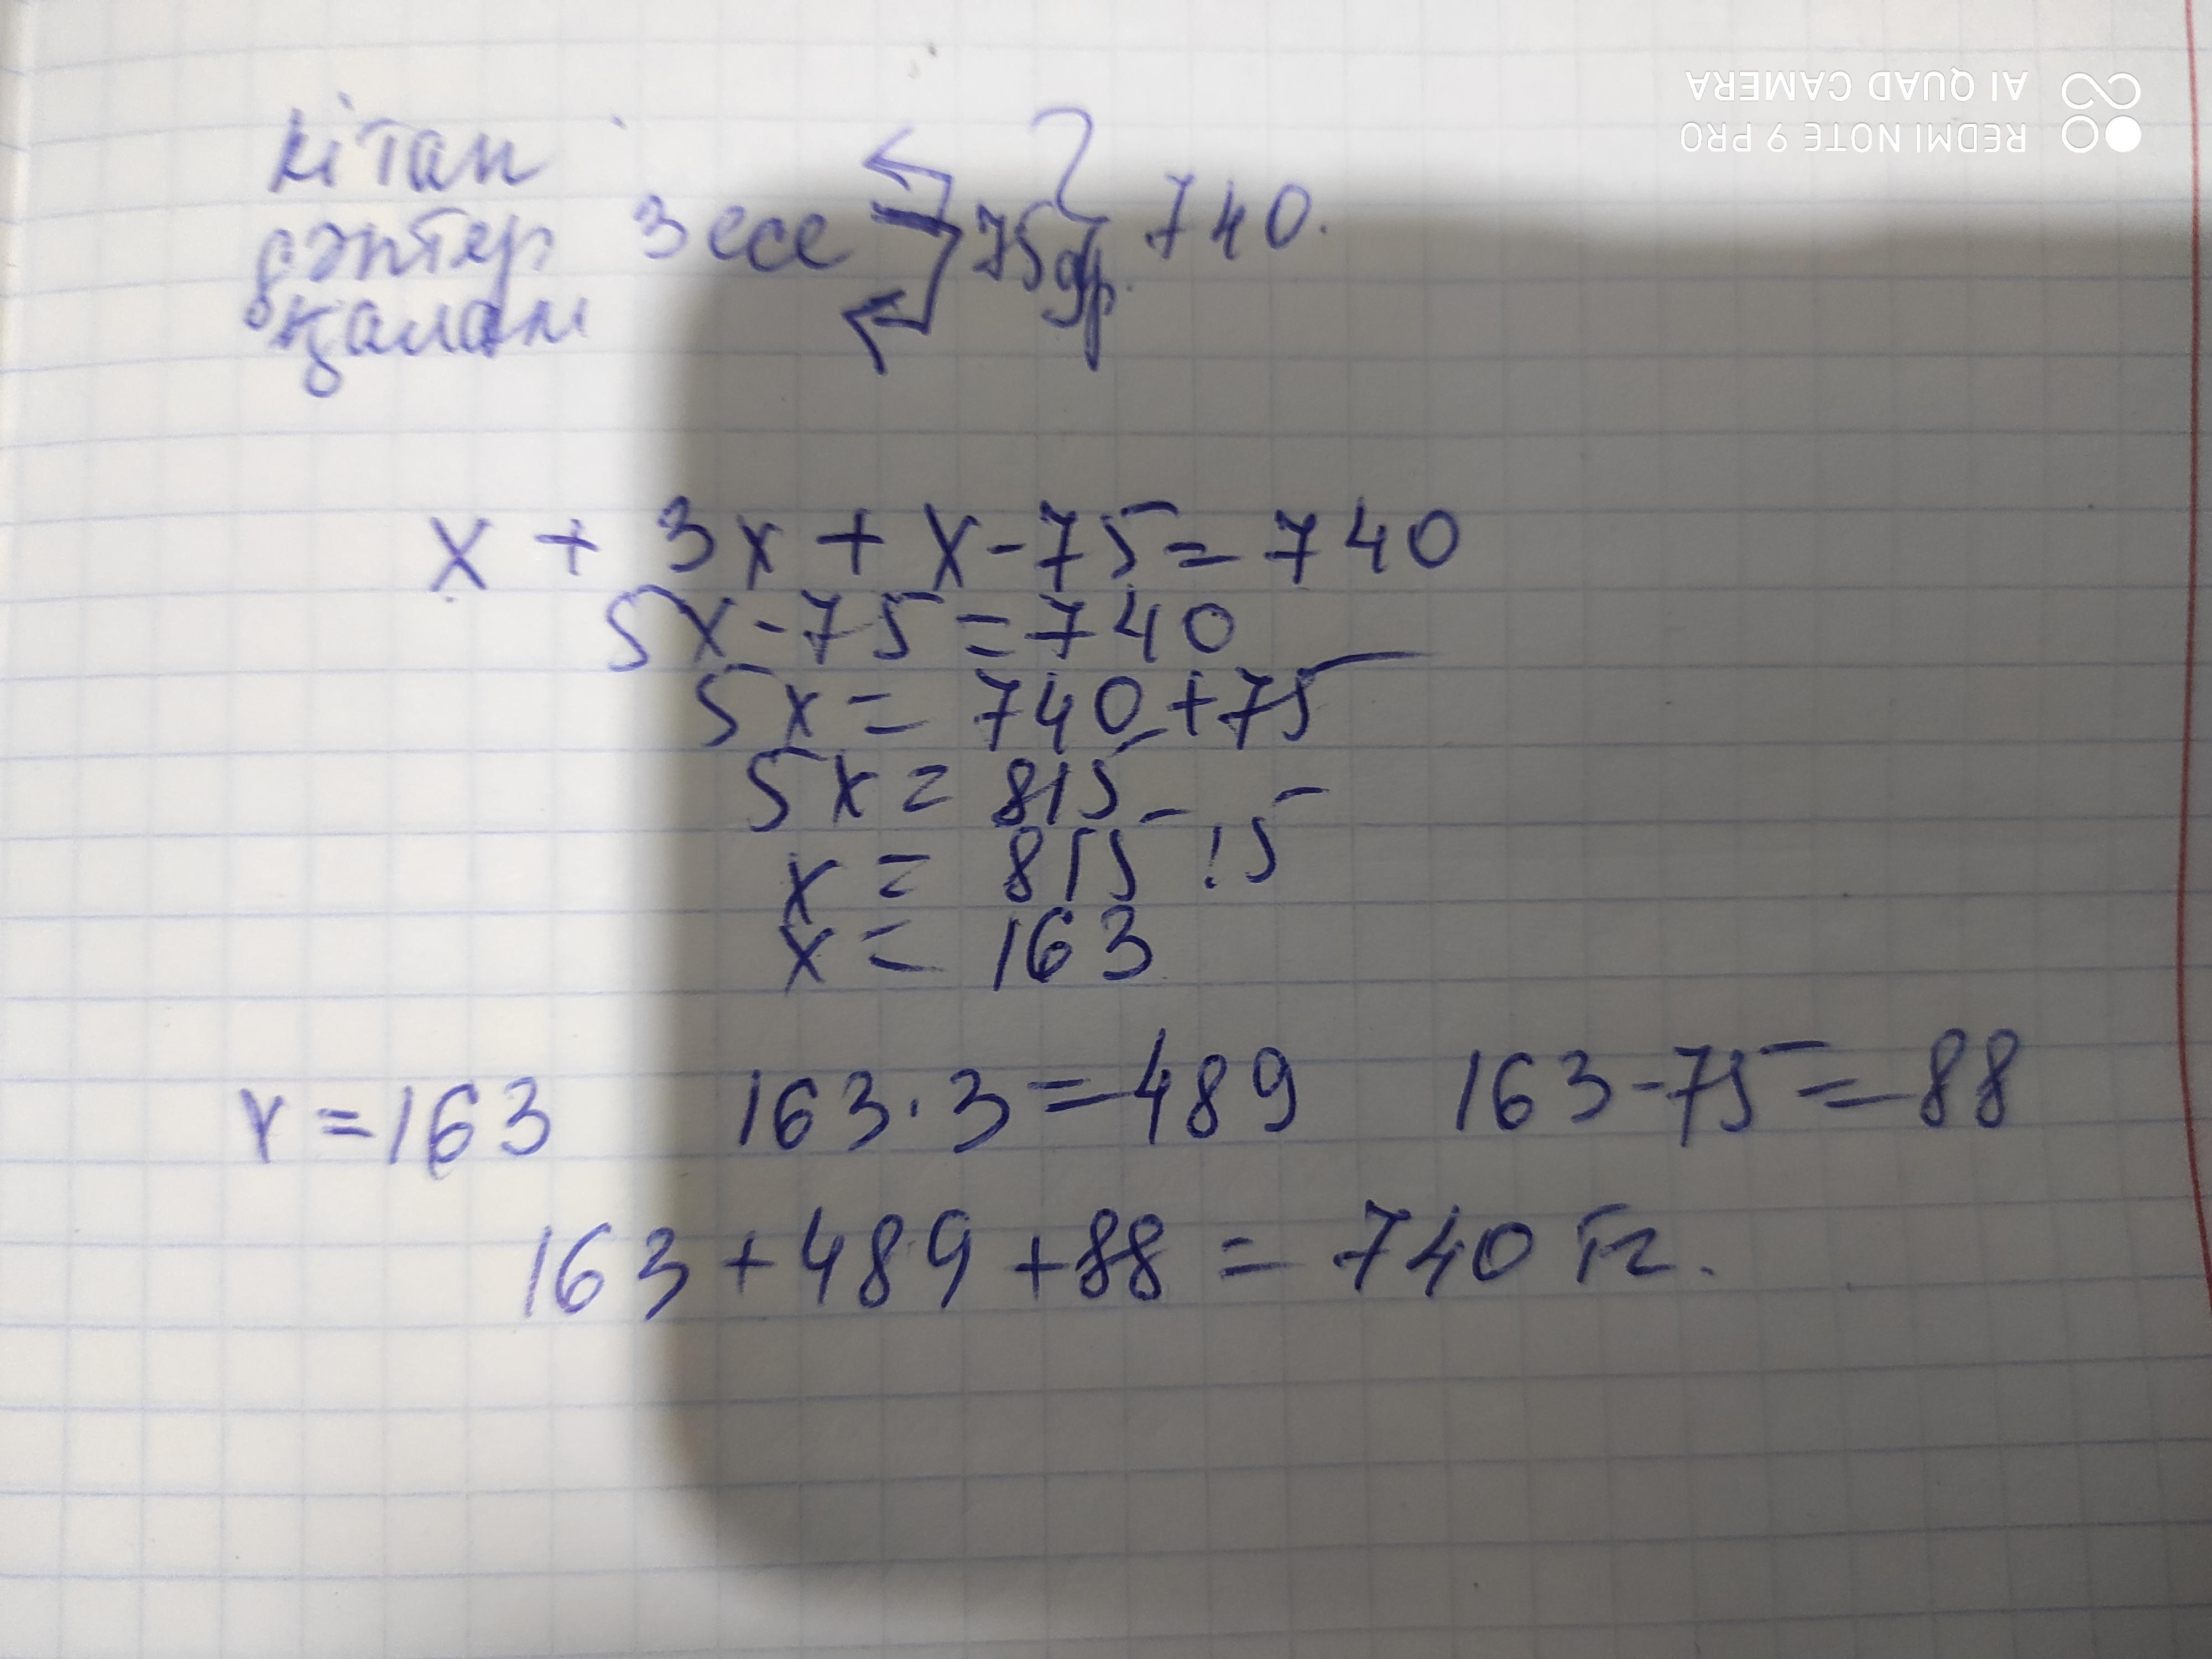 кітап
дәптер 3 есе 75 др. 740.
қалам
x + 3x + x - 75 = 740
5x - 75 = 740
5x = 740 + 75
5x = 815
x = 815 : 5
x = 163
x = 163 163 · 3 = 489 163 - 75 = 88
163 + 489 + 88 = 740 тг.
REDMI NOTE 9 PRO
AI QUAD CAMERA